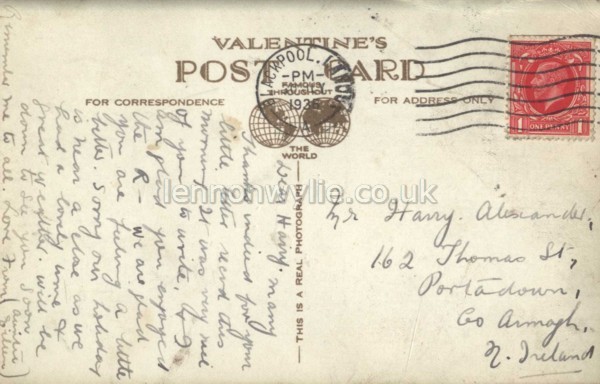 VALENTINE'S
POST CARD
FAMOUS
THROUGHOUT
THE
WORLD
FOR CORRESPONDENCE
FOR ADDRESS ONLY
BLACKPOOL. LANCS.
-PM-
1935
ONE PENNY
1 1
THIS IS A REAL PHOTOGRAPH
Dear Harry. Many
thanks indeed for your
little letter recvd this
morning. It was very nice
of you to write, &
am glad you enjoyed
the R- We are glad
you are feeling a little
better. Sorry our holiday
is near a close as we
had a lovely time &
great weather. Will be
down to see you soon
Remember me to all. Love from
Mr Harry. Alexander,
162 Thomas St,
Portadown,
Co Armagh,
N. Ireland
lennonwylie.co.uk